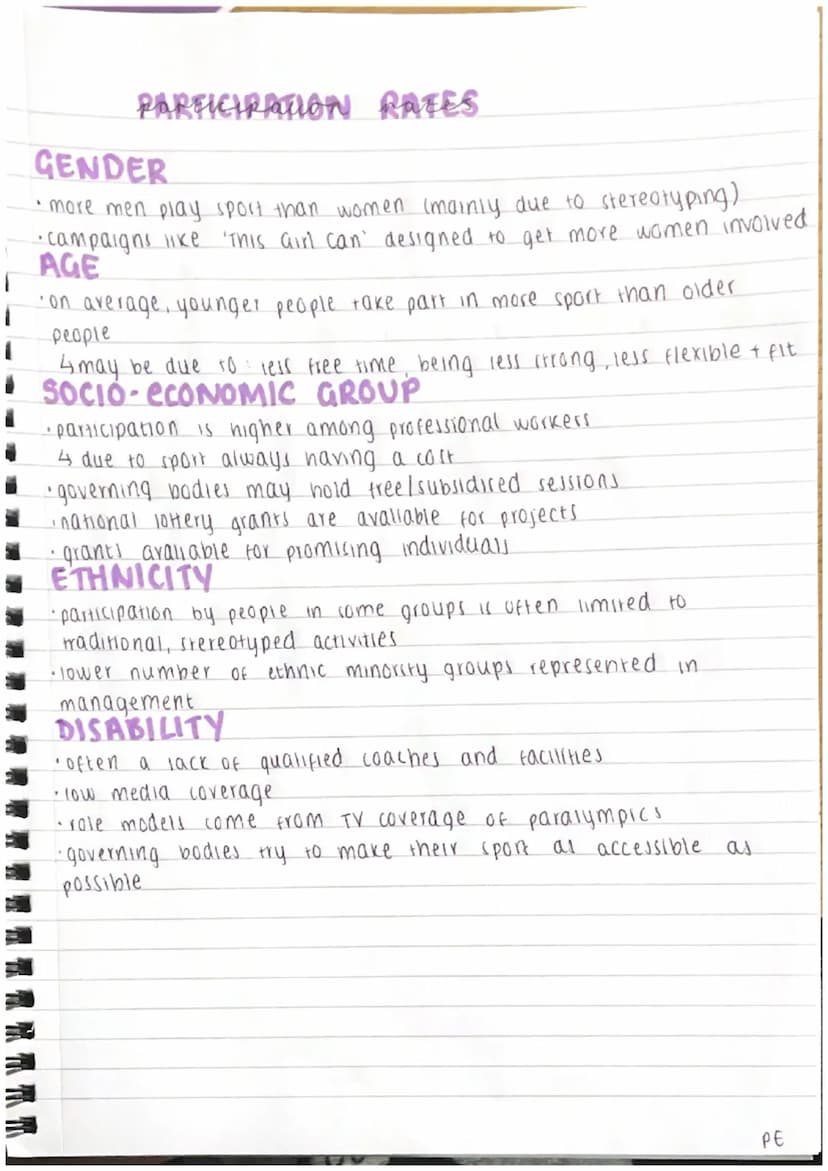 PARTICIPATION RATES
GENDER
• more men play sport than women (mainly due to stereotyping)
• campaigns like 'This Girl Can' designed to get more women involved
AGE
• on average, younger people take part in more sport than older
people
↳ may be due to: less free time, being less strong, less flexible + fit
SOCIO-ECONOMIC GROUP
• participation is higher among professional workers
↳ due to sport always having a cost
• governing bodies may hold free/subsidised sessions
• national lottery grants are available for projects
• grants available for promising individuals
ETHNICITY
• participation by people in some groups is often limited to
traditional, stereotyped activities
• lower number of ethnic minority groups represented in
management
DISABILITY
• often a lack of qualified coaches and facilities
• low media coverage
• role models come from TV coverage of paralympics
• governing bodies try to make their sport as accessible as
possible
PE